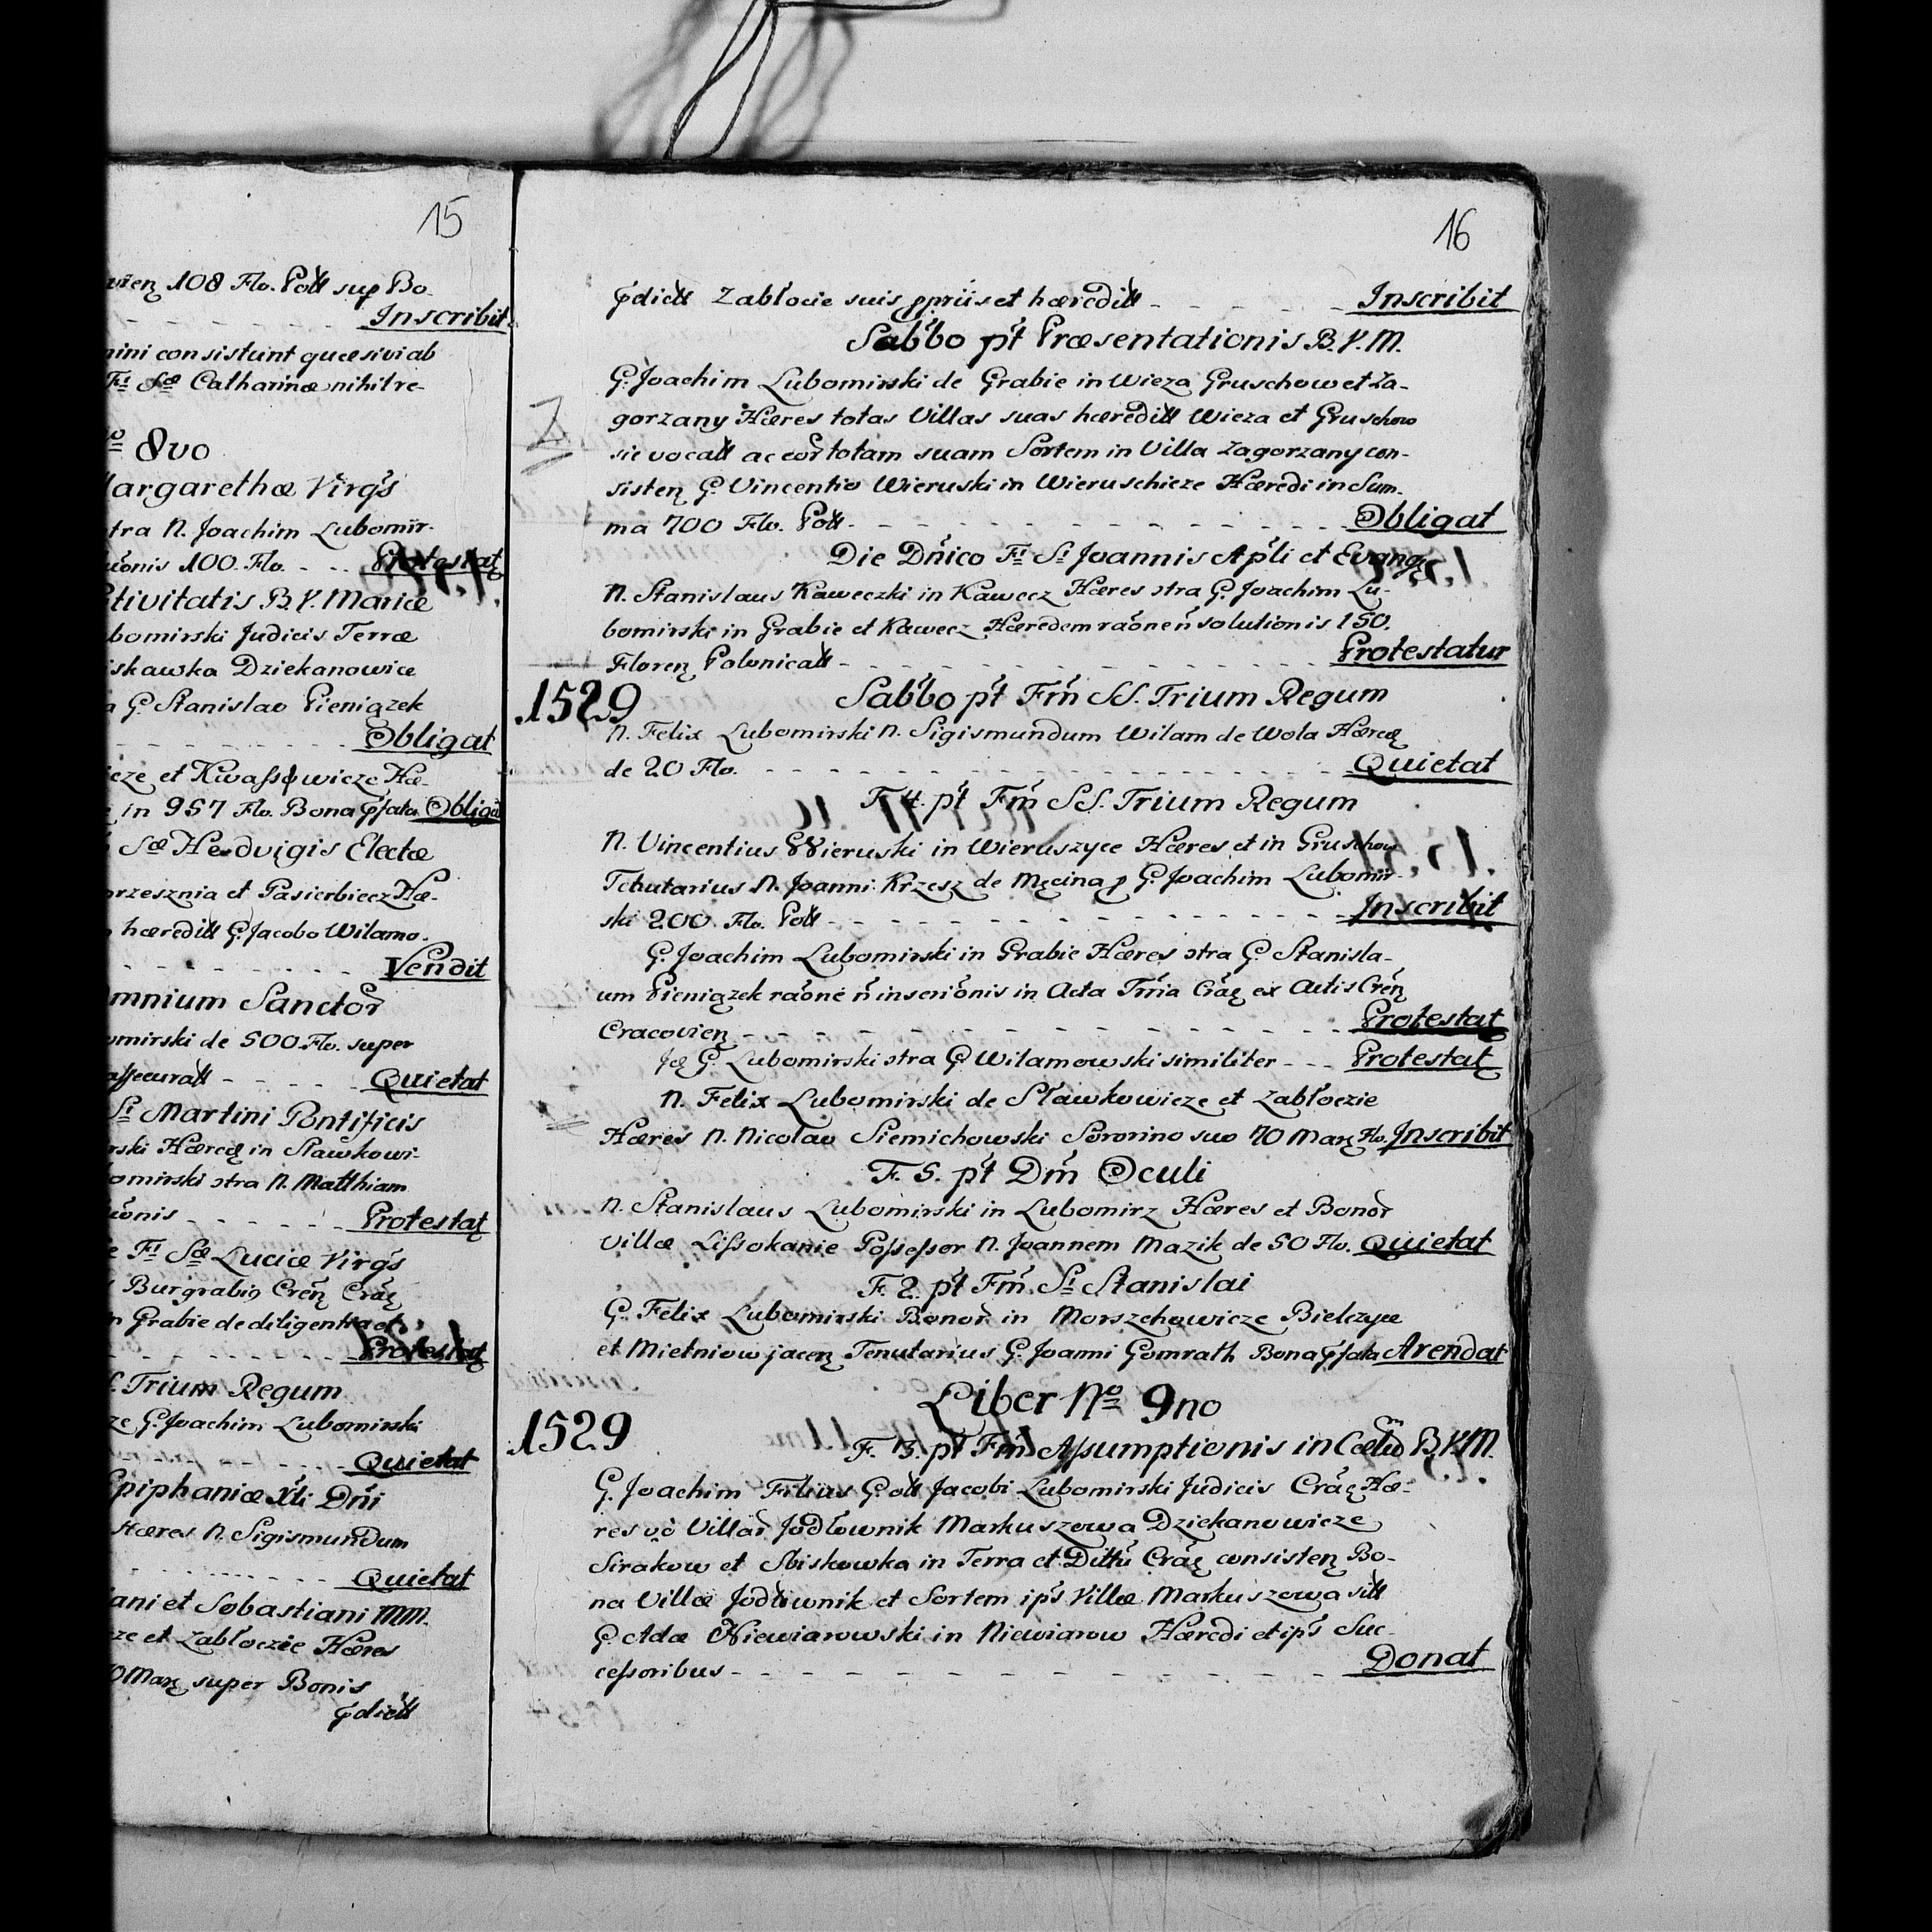 15
108 Flo. Poll sup Bo-
Inscribit
consistunt quæsivi ab
Fi Sæ Catharinæ nihil re-
8vo
Margarethæ Virgs
N. Joachim Lubomir-
100. Flo. - - Protestaț
Nativitatis B. V. Mariæ
Lubomirski Judicis Terræ
Dziekanowice
G. Stanislao Pieniązek
Obligat
et Hæ-
in 957 Flo. Bona Obligat
Sæ Hedvigis Electæ
et Pasierbiecz Hæ-
hæredill G. Jacobo Wilamo-
Vendit
Omnium Sanctor
de 500. Flo. super
Quietat
Si Martini Pontificis
Hæreę in Sławkowi-
ↄtra N. Matthiam
Protestaț
Fi Sæ Luciæ Virgs
Burgrabiᵒ Creń Crać
Grabie de diligentia et
Protestaț
Trium Regum
G. Joachim Lubomirski
Quietat
Epiphaniæ Xti Dńi
Hæres N. Sigismundum
Quietat
et Sebastiani MM.
et Zabłoczie Hæres
Marę super Bonis
p̃dictt
16
p̃dictt Zabłocie suis ppriis et hæredill - - - - Inscribit
Sab̃bo p̃t Præsentationis B. V. M.
G. Joachim Lubomirski de Grabie in Wieza Gruschow et Za-
gorzany Hæres totas Villas suas hæredill Wieza et Gruschow
sic vocall ac eor̃ totam suam Sortem in Villa Zagorzany con-
sisteņ G. Vincentio Wieruski in Wieruschicze Hæredi in Sum-
ma 700 Flo. Poll - - - - Obligat
Die Dńico Fi Si Joannis Apli et Evang
N. Stanislaus Kaweczki in Kawecz Hæres ↄtra G. Joachim Lu-
bomirski in Grabie et Kawecz Hæredem raõne ñ solutionis 150.
Floreņ Polonicall - - - - Protestatur
1529
Sab̃bo p̃t Fm̃ SS. Trium Regum
N. Felix Lubomirski N. Sigismundum Wilam de Wola Hæreę
de 20 Flo. - - - - Quietat
F. 4. p̃t Fm̃ SS. Trium Regum
N. Vincentius Wieruski in Wieruszyce Hæres et in Gruschow
Tehutarius N. Joanni Krzesz de Męcina p G. Joachim Lubomir-
ski 200 Flo. Poll - - - - Inscribit
G. Joachim Lubomirski in Grabie Hæres ↄtra G. Stanisla-
um Pieniązek raõne ñ inscriõnis in Acta Trr̃ia Crać ex Actis Creń
Cracovieņ - - - - Protestaț
G. Lubomirski ↄtra G. Wilamowski similiter - - - Protestaț
N. Felix Lubomirski de Sławkowicze et Zabłoczie
Hæres N. Nicolao Siemichowski Sororino suo 70 Marę Flo. Inscribit
F. 5. p̃t Dm̃ Oculi
N. Stanislaus Lubomirski in Lubomirz Hæres et Bonor̃
Villæ Lissokanie Possessor N. Joannem Mazik de 50 Flo. Quietat
F. 2. p̃t Fm̃ Si Stanislai
G. Felix Lubomirski Bonor̃ in Morszchowicze Bielczyce
et Mietniow jaceņ Tenutarius G. Joanni Gomrath Bona p̃fata Arendat
Liber No 9no
1529
F. 3. p̃t Fm̃ Assumptionis in Cœlũ B. V. M.
G. Joachim Filius G. oll Jacobi Lubomirski Judicis Crać Hæ-
res võ Villar̃ Jodłownik Markuszowa Dziekanowicze
Sirakow et Sbiskowka in Terra et Dittũ Crać consisteņ Bo-
na Villæ Jodłownik et Sortem ips Villæ Markuszowa sill
G. Adæ Niewiarowski in Niewiarow Hæredi et ips Suc-
cessoribus - - - - Donat